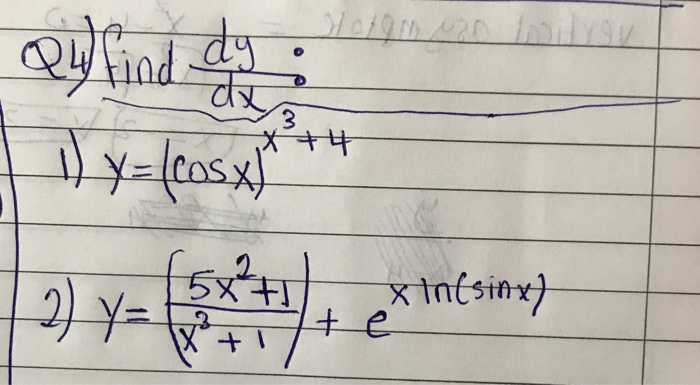 Q4) find dy/dx :
1) y = (cosx)^(x^3 + 4)
2) y = ((5x^2 + 1)/(x^3 + 1)) + e^(x ln(sinx))